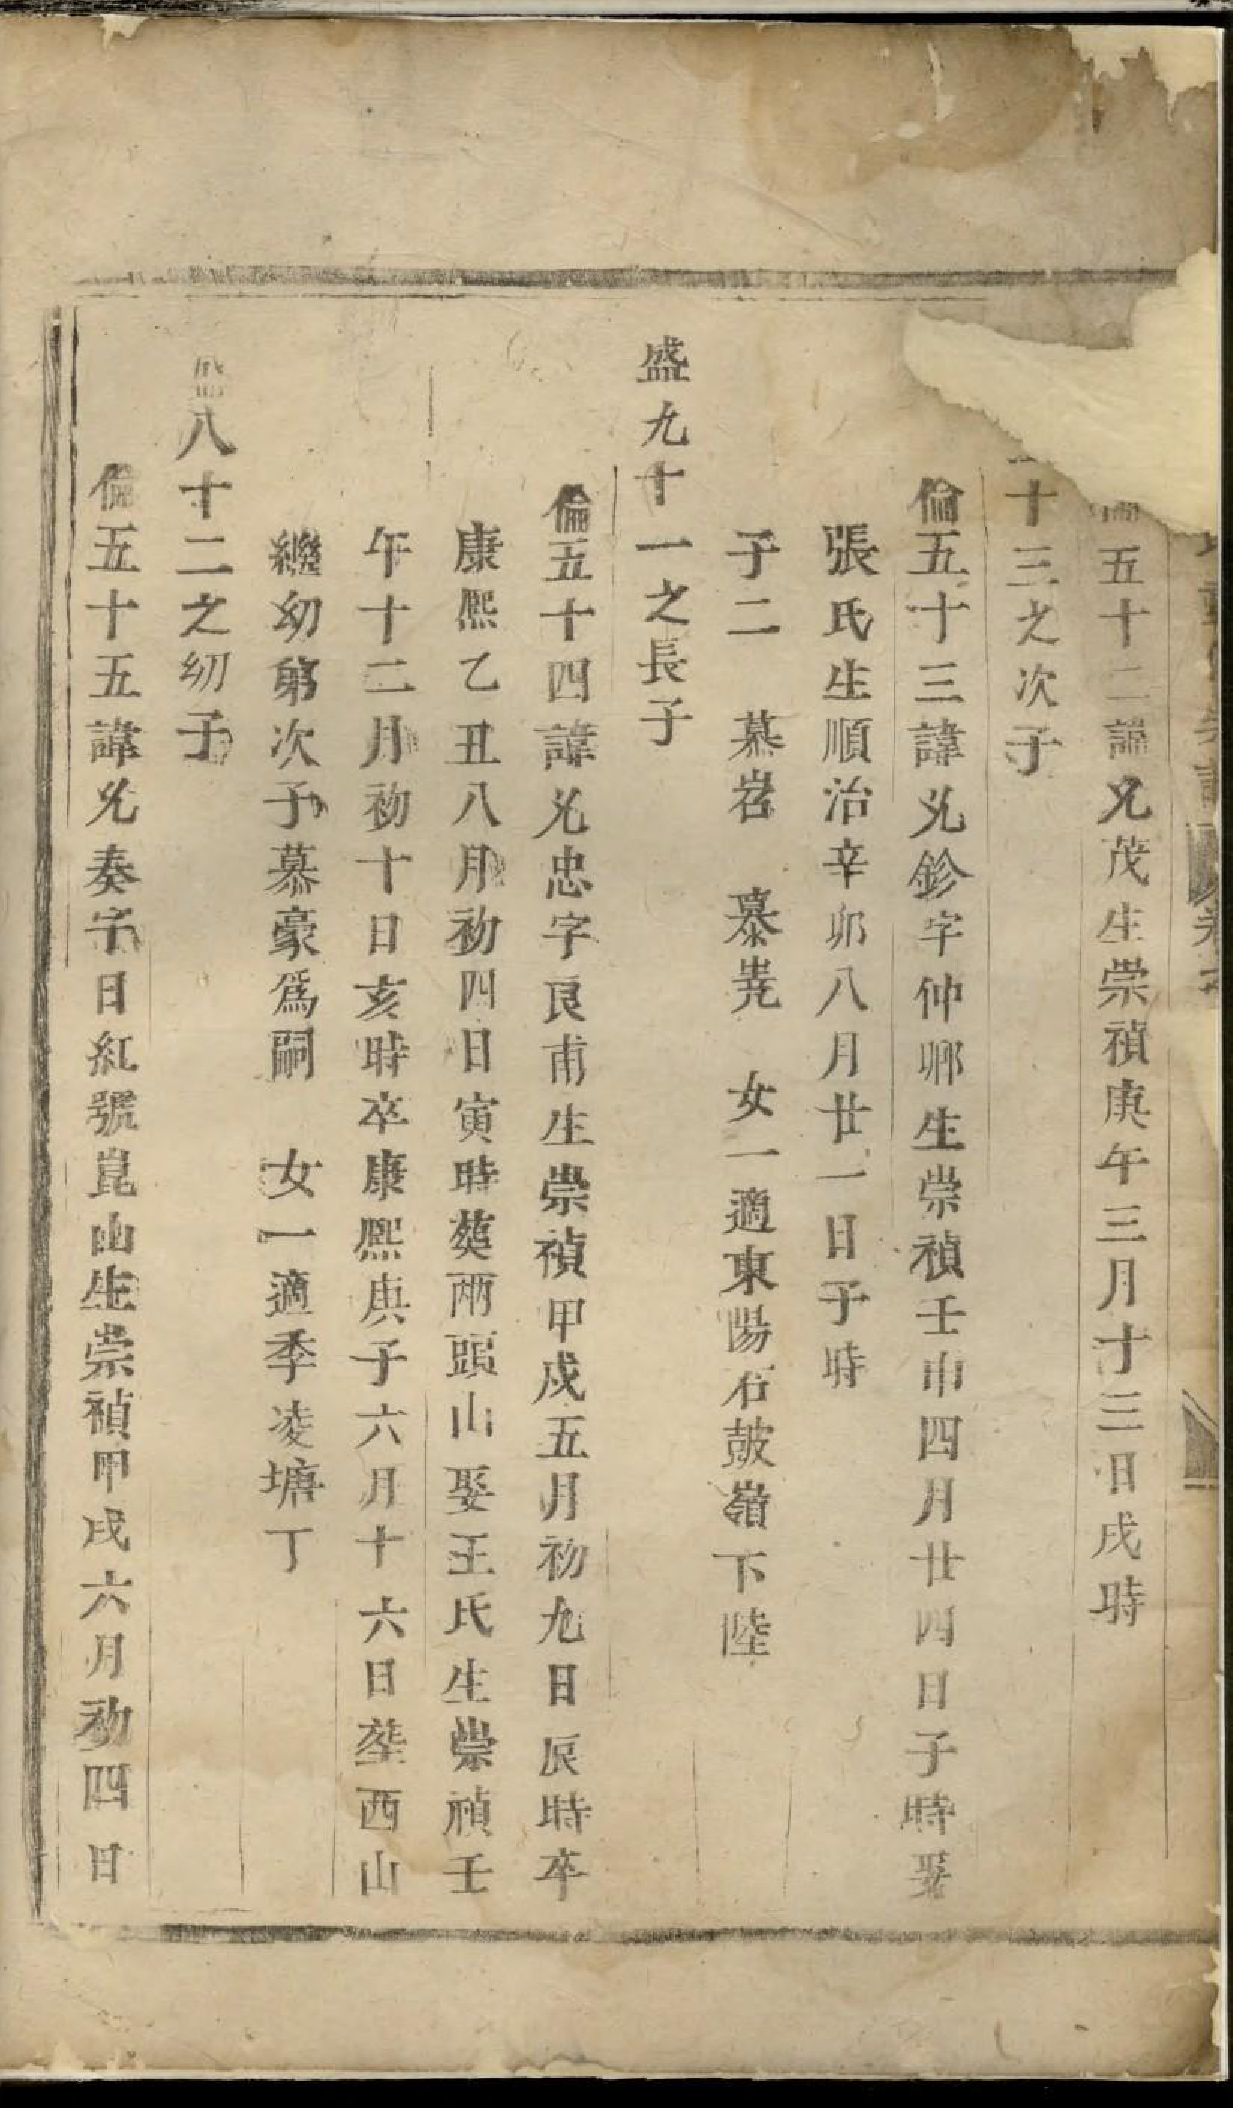 五十二諱兊茂生崇禎庚午三月十三日戌時
十三之次子
倫五十三諱兊鉁字仲卿生崇禎壬申四月廿四日子時娶
張氏生順治辛卯八月廿一日子時
子二　慕岩　慕堯　女一適東陽石鼓嶺下陸
盛九十一之長子
倫五十四諱兊忠字良甫生崇禎甲戍五月初九日辰時卒
康熙乙丑八月初四日寅時葬兩頭山娶王氏生崇禎壬
午十二月初十日亥時卒康熙庚子六月十六日塟西山
繼幼弟次子慕豪爲嗣　女一適季凌塘丁
盛八十二之幼子
倫五十五諱兊奏字日紅號崑山生崇禎甲戌六月初四日